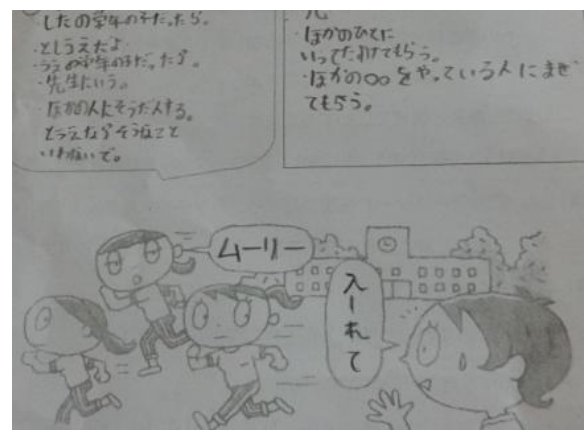 したの学年の子だったら。
・としうえだよ
・うえの学年の子だったら。
・先生にいう。
・ほかの人にそうだんする。
とうえならそうなこと
いわないで。
・ほかのひとに
いってたすけてもらう。
・ほかの○○をやっている人にまぜ
てもらう。
ムーリー
入ーれて